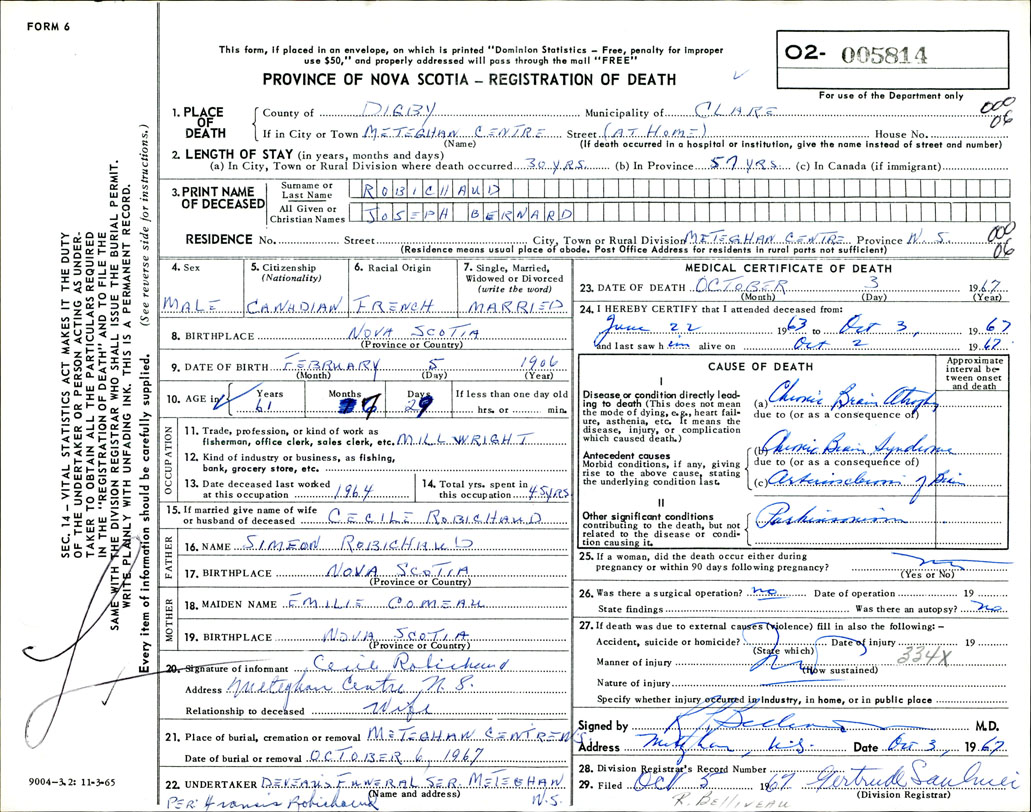 FORM 6
This form, if placed in an envelope, on which is printed "Dominion Statistics – Free, penalty for improper
use $50," and properly addressed will pass through the mail "FREE"
PROVINCE OF NOVA SCOTIA – REGISTRATION OF DEATH
O2- 005814
For use of the Department only
1. PLACE OF DEATH County of DIGBY Municipality of CLARE
000
06
If in City or Town METEGHAN CENTRE Street (AT HOME) House No.
(Name) (If death occurred in a hospital or institution, give the name instead of street and number)
2. LENGTH OF STAY (in years, months and days)
(a) In City, Town or Rural Division where death occurred 30 YRS. (b) In Province 57 YRS. (c) In Canada (if immigrant)
3. PRINT NAME OF DECEASED
Surname or Last Name ROBICHAUD
All Given or Christian Names JOSEPH BERNARD
RESIDENCE No. Street City, Town or Rural Division METEGHAN CENTRE Province N.S.
000
06
(Residence means usual place of abode. Post Office Address for residents in rural parts not sufficient)
4. Sex MALE
5. Citizenship (Nationality) CANADIAN
6. Racial Origin FRENCH
7. Single, Married, Widowed or Divorced (write the word) MARRIED
8. BIRTHPLACE NOVA SCOTIA
(Province or Country)
9. DATE OF BIRTH FEBRUARY 5 1906
(Month) (Day) (Year)
10. AGE in Years 61 Months 7 Days 29 If less than one day old hrs. or min.
OCCUPATION
11. Trade, profession, or kind of work as
fisherman, office clerk, sales clerk, etc. MILLWRIGHT
12. Kind of industry or business, as fishing,
bank, grocery store, etc.
13. Date deceased last worked
at this occupation 1964
14. Total yrs. spent in
this occupation 45 YRS.
15. If married give name of wife
or husband of deceased CECILE ROBICHAUD
FATHER
16. NAME SIMEON ROBICHAUD
17. BIRTHPLACE NOVA SCOTIA
(Province or Country)
MOTHER
18. MAIDEN NAME EMILIE COMEAU
19. BIRTHPLACE NOVA SCOTIA
(Province or Country)
20. Signature of informant Cecile Robichaud
Address Meteghan Centre N.S.
Relationship to deceased Wife
21. Place of burial, cremation or removal METEGHAN CENTRE N.S.
Date of burial or removal OCTOBER 6, 1967
22. UNDERTAKER DEVEAU'S FUNERAL SER. METEGHAN
(Name and address) N.S.
PER: Francis Robichaud
MEDICAL CERTIFICATE OF DEATH
23. DATE OF DEATH OCTOBER 3 1967
(Month) (Day) (Year)
24. I HEREBY CERTIFY that I attended deceased from:
June 22 1963 to Oct 3, 1967
and last saw him alive on Oct 2 1967
CAUSE OF DEATH
Approximate interval between onset and death
I
Disease or condition directly leading to death (This does not mean the mode of dying, e.g., heart failure, asthenia, etc. It means the disease, injury, or complication which caused death.)
(a) Chronic Brain Atrophy
due to (or as a consequence of)
Antecedent causes
Morbid conditions, if any, giving rise to the above cause, stating the underlying condition last.
(b) Chronic Brain Syndrome
due to (or as a consequence of)
(c) Arteriosclerosis of Brain
II
Other significant conditions
contributing to the death, but not related to the disease or condition causing it.
Parkinsonism
25. If a woman, did the death occur either during
pregnancy or within 90 days following pregnancy?
(Yes or No)
26. Was there a surgical operation? no Date of operation 19
State findings Was there an autopsy? no
27. If death was due to external causes (violence) fill in also the following:–
Accident, suicide or homicide? Date of injury 19
(State which)
334X
Manner of injury
(How sustained)
Nature of injury
Specify whether injury occurred in industry, in home, or in public place
Signed by R. Belliveau M.D.
Address Meteghan, N.S. Date Oct 3, 1967
28. Division Registrar's Record Number
29. Filed Oct 5 1967 Gertrude Saulnier
(Division Registrar)
R. BELLIVEAU
SEC. 14 – VITAL STATISTICS ACT MAKES IT THE DUTY
OF THE UNDERTAKER OR PERSON ACTING AS UNDER-
TAKER TO OBTAIN ALL THE PARTICULARS REQUIRED
IN THE "REGISTRATION OF DEATH" AND TO FILE THE
SAME WITH THE DIVISION REGISTRAR WHO SHALL ISSUE THE BURIAL PERMIT.
WRITE PLAINLY WITH UNFADING INK. THIS IS A PERMANENT RECORD.
Every item of information should be carefully supplied. (See reverse side for instructions.)
9004-3.2: 11-3-65